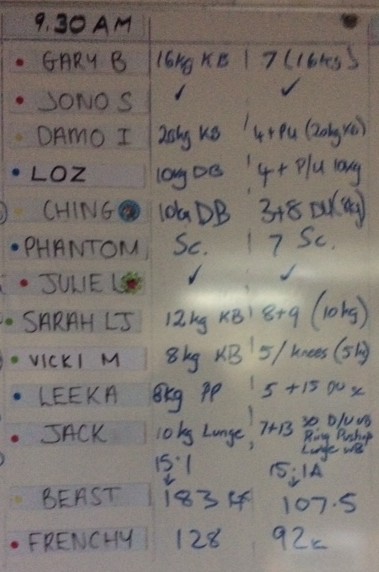 9.30 AM
GARY B 16kg KB 7 (16kg)
JONO S ✓ ✓
DAMO I 20kg KB 4+PU (20kg KB)
LOZ 10kg DB 4+ P/U 10kg
CHING 10kg DB 3+8 DU (8kg)
PHANTOM Sc. 7 Sc.
JULIE L ✓ ✓
SARAH LJ 12kg KB 8+9 (10kg)
VICKI M 8kg KB 5/ knees (5kg)
LEEKA 8kg PP 5 +15 DU
JACK 10kg Lunge 7+13 30 D/U
Ring Pushup
Lunge
15.1 15.1A
BEAST 183 107.5
FRENCHY 128 92